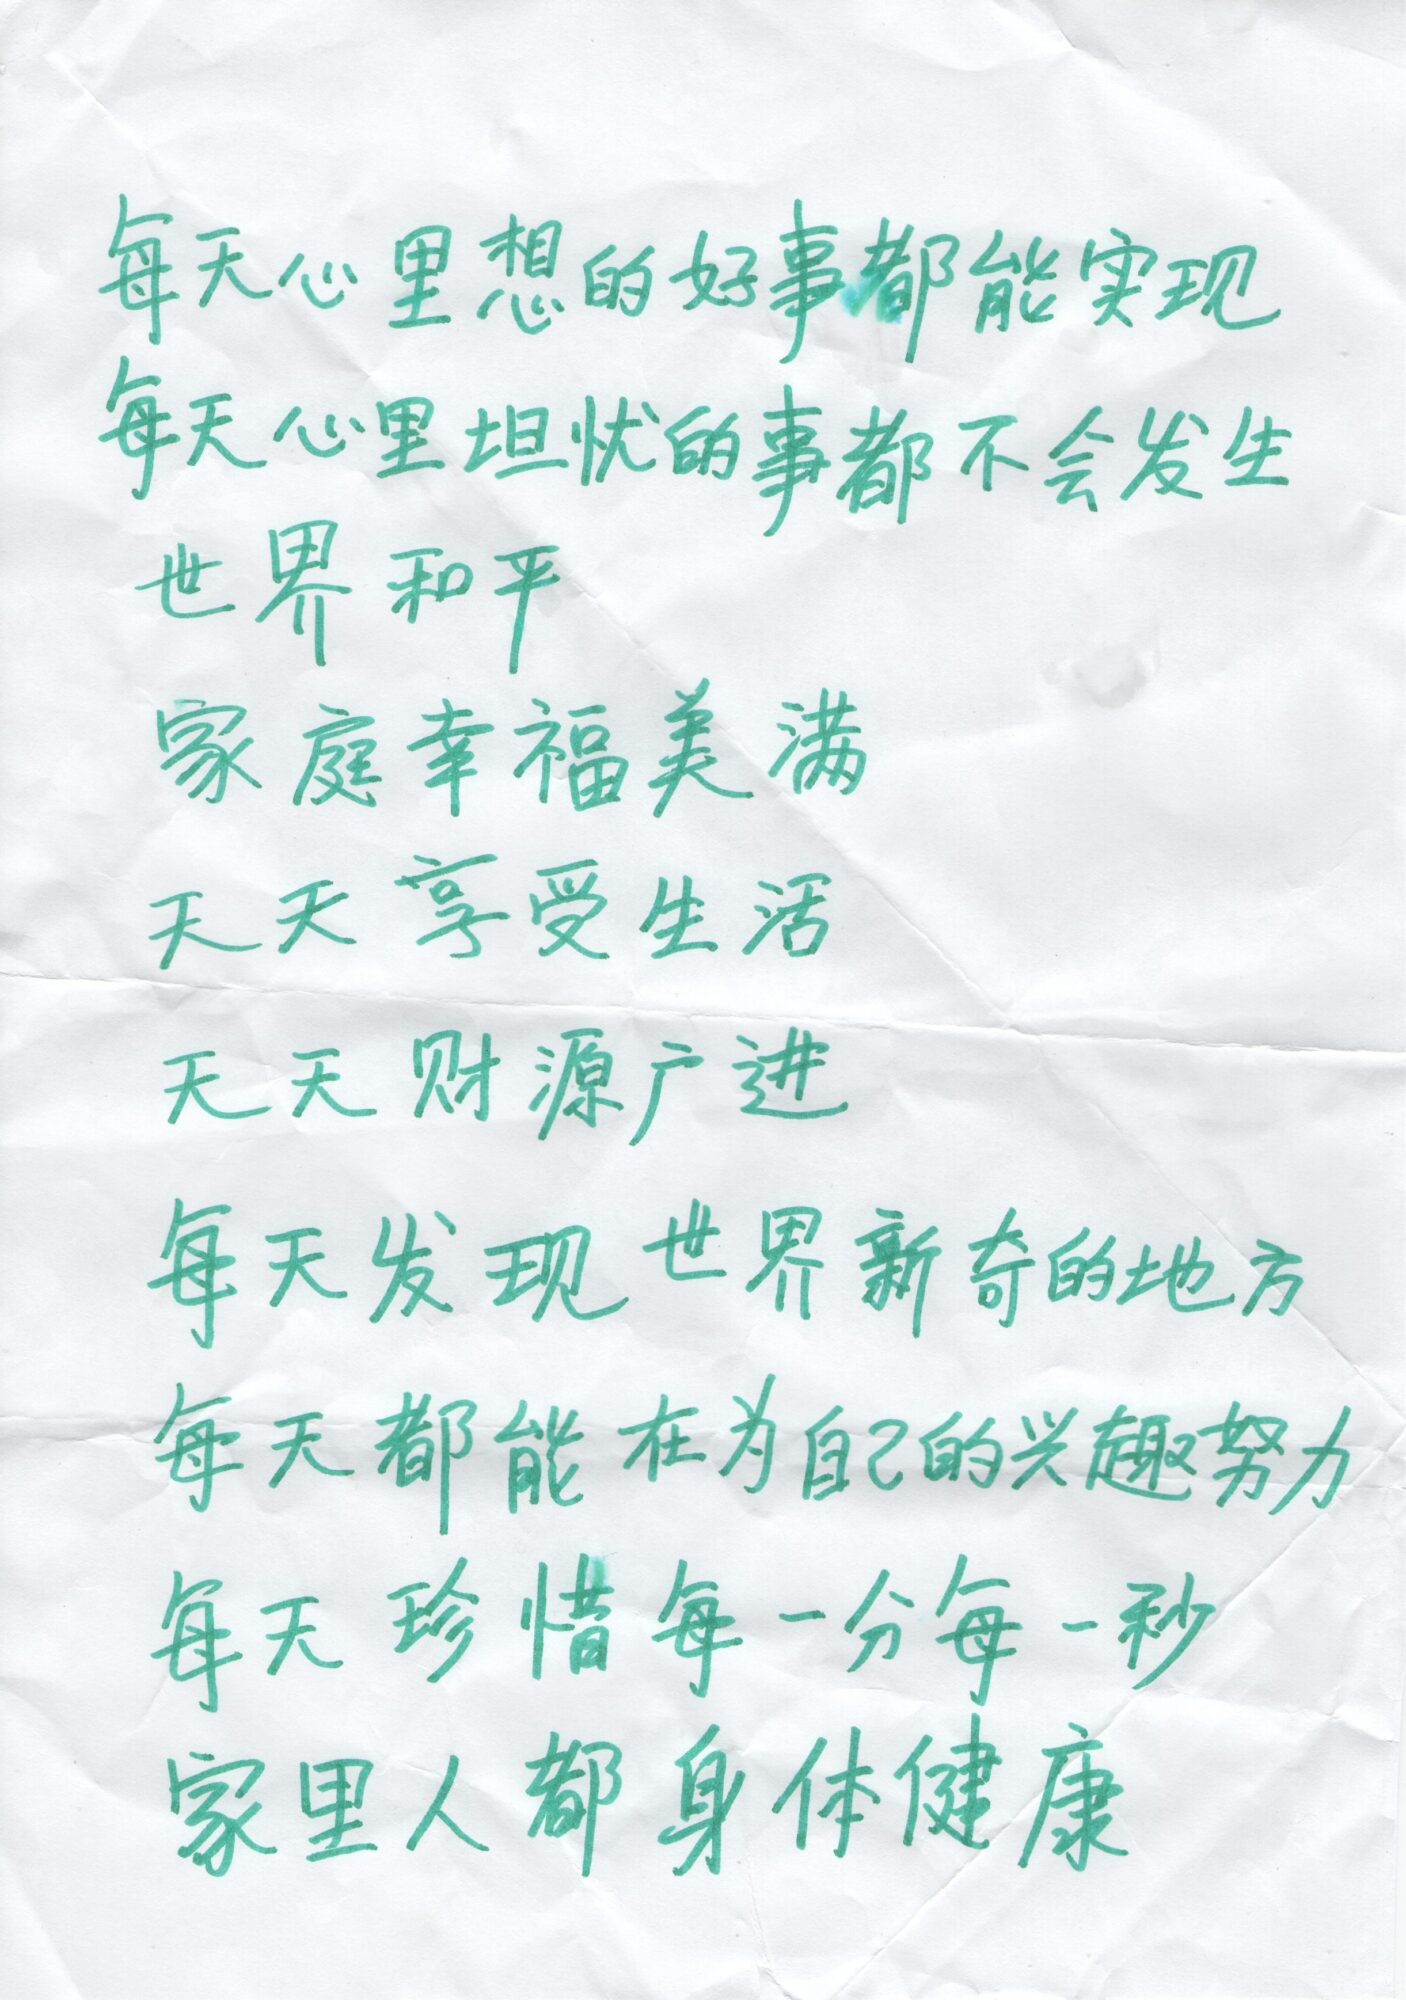 每天心里想的好事都能实现
每天心里坦忧的事都不会发生
世界和平
家庭幸福美满
天天享受生活
天天财源广进
每天发现世界新奇的地方
每天都能在为自己的兴趣努力
每天珍惜每一分每一秒
家里人都身体健康